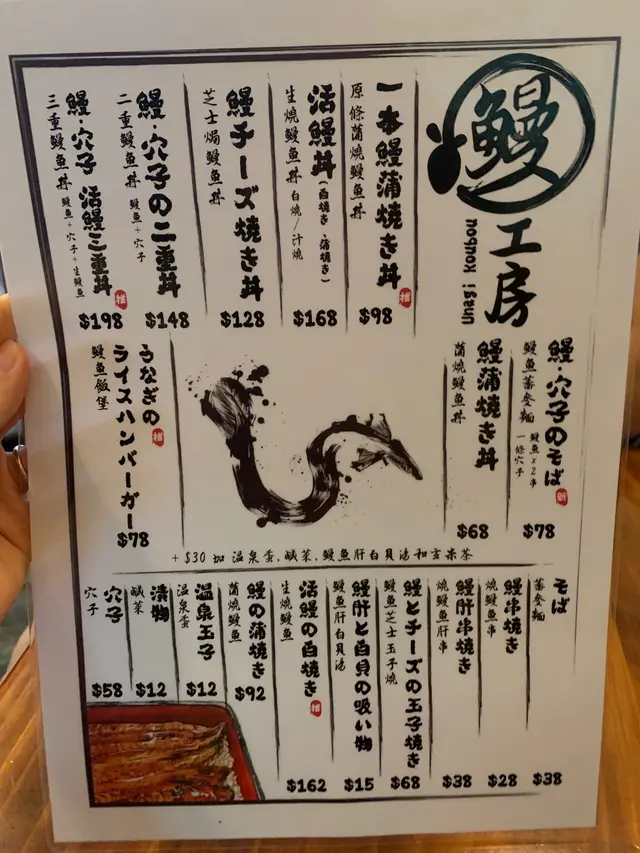 鰻
工房
Unagi Koubou
一本鰻蒲焼き丼
原條蒲燒鰻魚丼
推
$98
活鰻丼(白焼き 蒲焼き)
生燒鰻魚丼 白燒/汁燒
$168
鰻チーズ焼き丼
芝士焗鰻魚丼
$128
鰻・穴子の二重丼
二重鰻魚丼 鰻魚+穴子
$148
鰻・穴子 活鰻三重丼
三重鰻魚丼 鰻魚+穴子+生鰻魚
推
$198
鰻・穴子のそば
鰻魚蕎麥麵 鰻魚x2串
一條穴子
新
$78
鰻蒲焼き丼
蒲燒鰻魚丼
$68
うなぎの
ライスハンバーガー
鰻魚飯堡
推
$78
+$30 加 溫泉蛋,鹹菜,鰻魚肝白貝湯和玄米茶
そば
蕎麥麵
$38
鰻串焼き
燒鰻魚串
$28
鰻肝串焼き
燒鰻魚肝串
$38
鰻とチーズの玉子焼き
鰻魚芝士玉子燒
$68
鰻肝と白貝の吸い物
鰻魚肝白貝湯
$15
活鰻の白焼き
生燒鰻魚
推
$162
鰻の蒲焼き
蒲燒鰻魚
$92
温泉玉子
溫泉蛋
$12
漬物
鹹菜
$12
穴子
穴子
$58